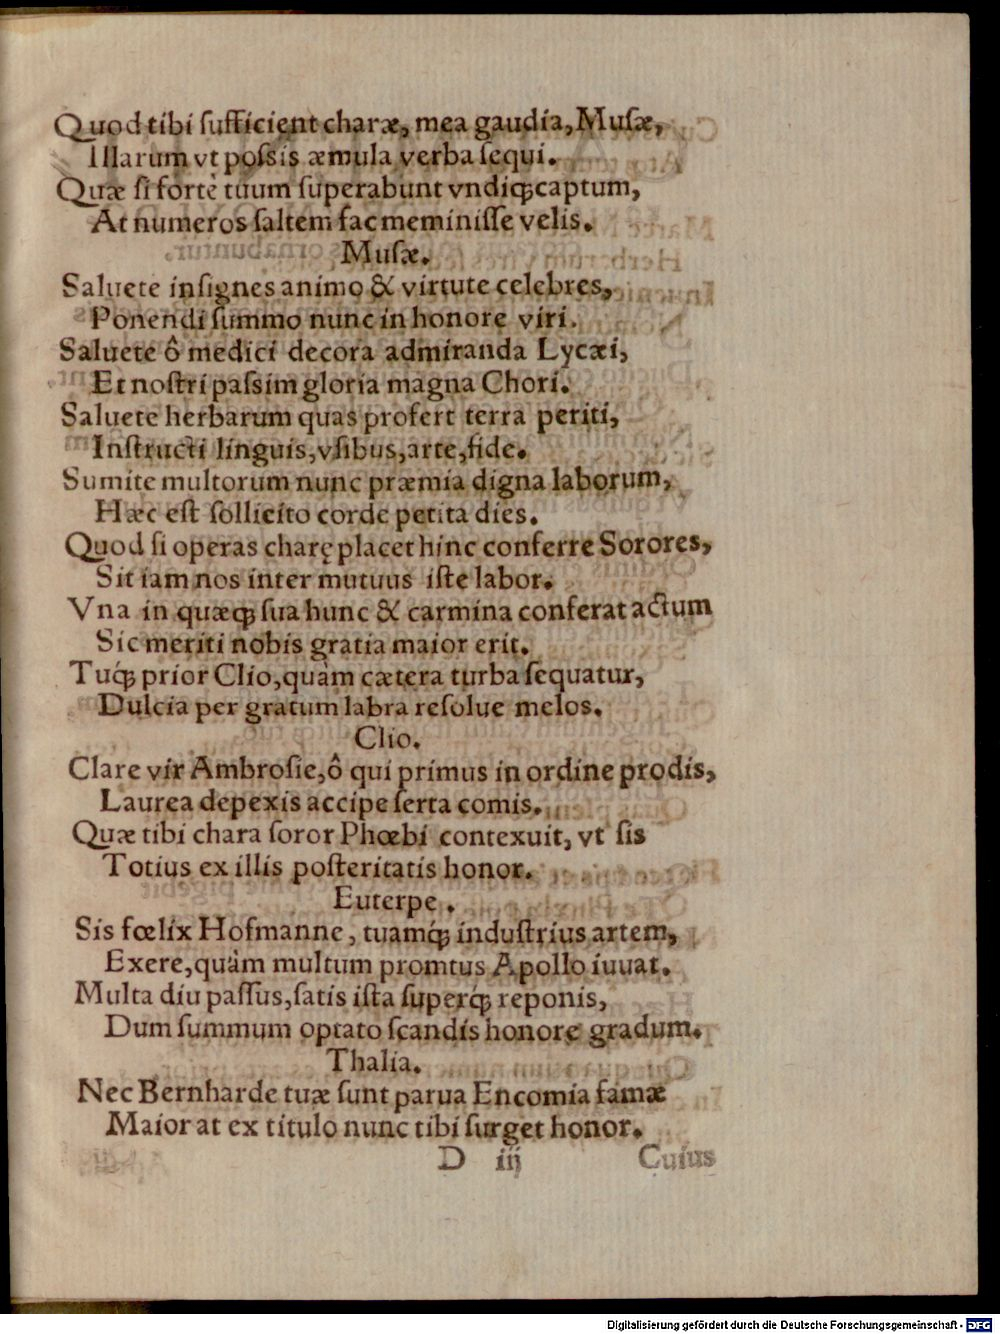 Quod tibi ſufficient charæ, mea gaudia, Muſæ,
Illarum vt poſsis æmula verba ſequi.
Quæ ſi fortè tuum ſuperabunt vndiq́; captum,
At numeros ſaltem fac meminiſſe velis.
Muſæ.
Saluete inſignes animo & virtute celebres,
Ponendi ſummo nunc in honore viri.
Saluete ô medici decora admiranda Lycæi,
Et noſtri paſsim gloria magna Chori.
Saluete herbarum quas profert terra periti,
Inſtructi linguis, vſibus, arte, fide.
Sumite multorum nunc præmia digna laborum,
Hæc eſt ſollicito corde petita dies.
Quod ſi operas charę placet hinc conferre Sorores,
Sit iam nos inter mutuus iſte labor.
Vna in quæq; ſua hunc & carmina conferat actum
Sic meriti nobis gratia maior erit.
Tuq́; prior Clio, quàm cætera turba ſequatur,
Dulcia per gratum labra reſolue melos.
Clio.
Clare vir Ambroſie, ô qui primus in ordine prodis,
Laurea depexis accipe ſerta comis.
Quæ tibi chara ſoror Phœbi contexuit, vt ſis
Totius ex illis poſteritatis honor.
Euterpe.
Sis fœlix Hofmanne, tuamq́; induſtrius artem,
Exere, quàm multum promtus Apollo iuuat.
Multa diu paſſus, ſatis iſta ſuperq́; reponis,
Dum ſummum optato ſcandis honore gradum.
Thalia.
Nec Bernharde tuæ ſunt parua Encomia famæ
Maior at ex titulo nunc tibi ſurget honor.
D iij Cuius
Digitalisierung gefördert durch die Deutsche Forschungsgemeinschaft - DFG